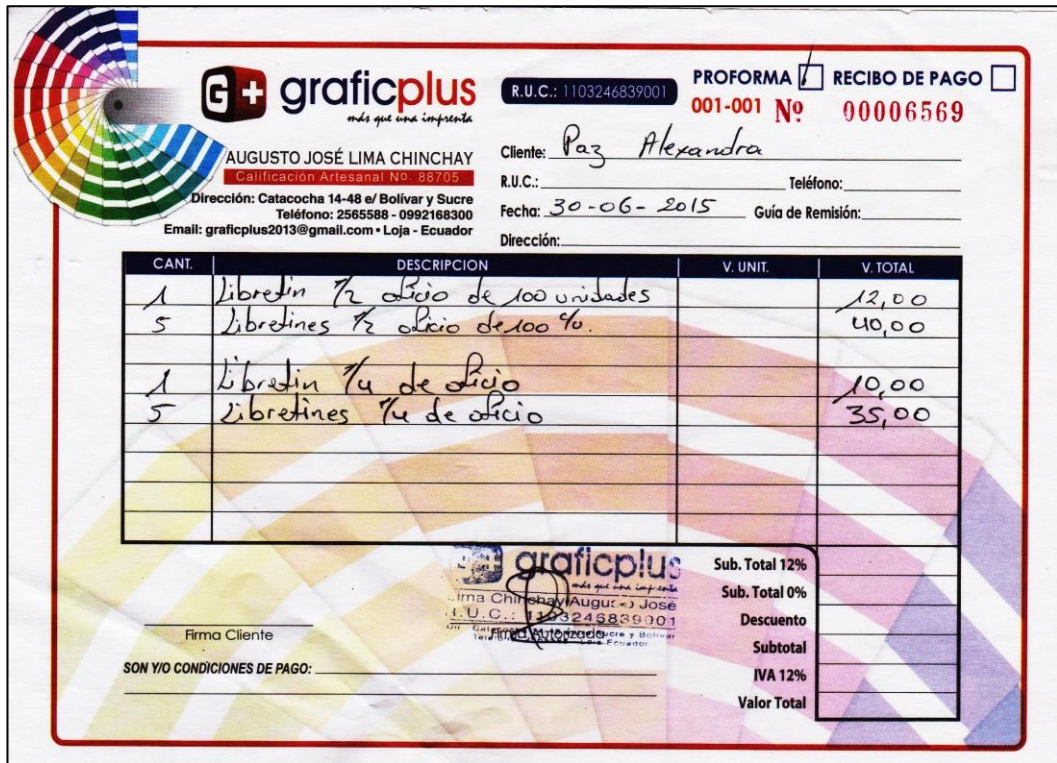 G+ graficplus
más que una imprenta
AUGUSTO JOSÉ LIMA CHINCHAY
Calificación Artesanal Nº. 88705
Dirección: Catacocha 14-48 e/ Bolívar y Sucre
Teléfono: 2565588 - 0992168300
Email: graficplus2013@gmail.com • Loja - Ecuador
R.U.C.: 1103246839001
PROFORMA RECIBO DE PAGO
001-001 Nº 00006569
Cliente: Paz Alexandra
R.U.C.: Teléfono:
Fecha: 30-06-2015 Guía de Remisión:
Dirección:
CANT. DESCRIPCION V. UNIT. V. TOTAL
1 Libretin 1/2 oficio de 100 unidades 12,00
5 Libretines 1/2 oficio de 100 40,00
1 Libretin 1/4 de oficio 10,00
5 Libretines 1/4 de oficio 35,00
graficplus
más que una imprenta
Lima Chinchay Augusto José
R.U.C.: 1103246839001
Firma Cliente
Firma Autorizada
SON Y/O CONDICIONES DE PAGO:
Sub. Total 12%
Sub. Total 0%
Descuento
Subtotal
IVA 12%
Valor Total